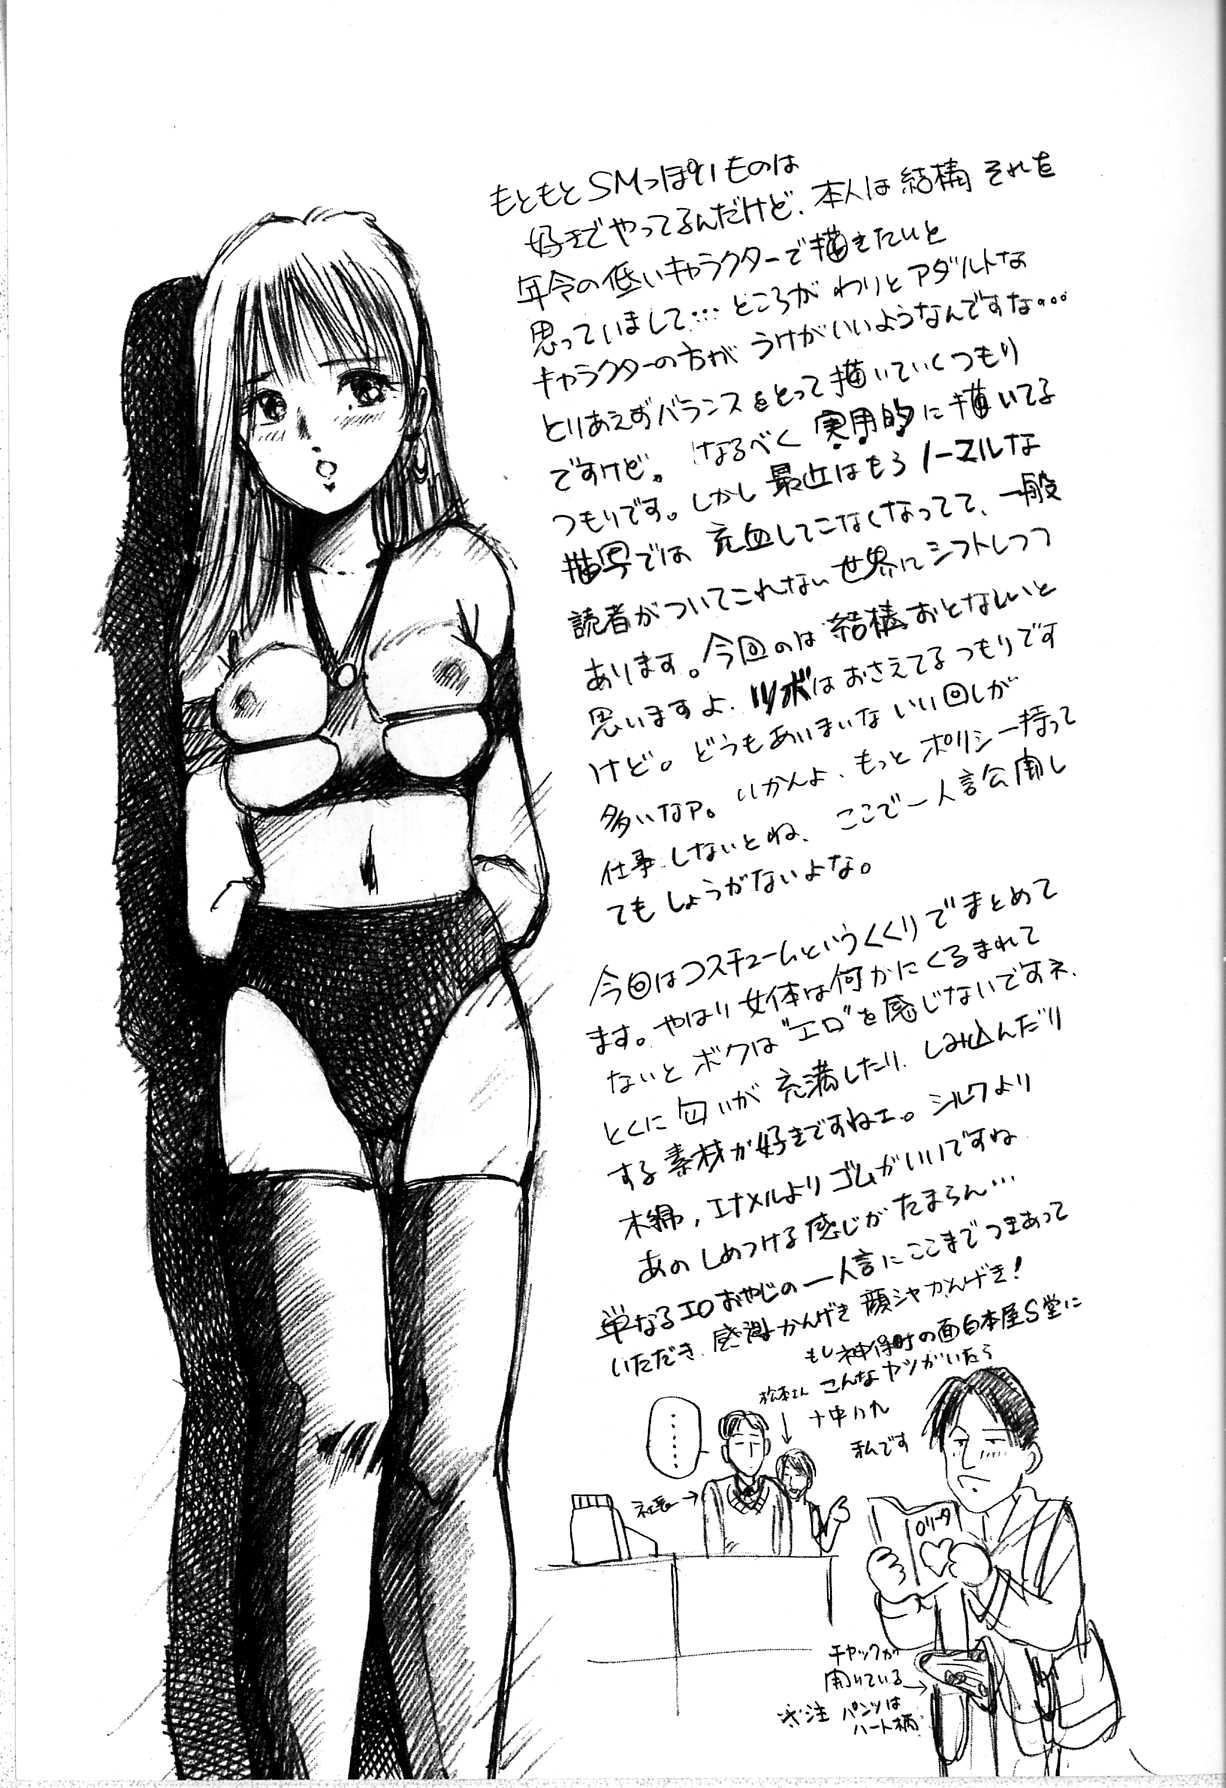 もともとSMっぽいものは
好きでやってるんだけど、本人は結構それを
年令の低いキャラクターで描きたいと
思っていまして…ところがわりとアダルトな
キャラクターの方がうけがいいようなんですな…
とりあえずバランスをとって描いていくつもり
ですけど。なるべく実用的に描いてる
つもりです。しかし最近はもうノーマルな
描写では充血してこなくなってて、一般
読者がついてこれない世界にシフトしつつ
あります。今回のは結構おとなしいと
思いますよ、ツボはおさえてるつもりです
けど。どうもあいまいないい回しが
多いなァ。いかんよ、もっとポリシー持って
仕事しないとね、ここで一人言公開し
てもしょうがないよな。
今回はコスチュームというくくりでまとめて
ます。やはり女体は何かにくるまれて
ないとボクは"エロ"を感じないですネ、
とくに匂いが充満したり、しみ込んだり
する素材が好きですねェ。シルクより
木綿、エナメルよりゴムがいいですね
あのしめつける感じがたまらん…
単なるエロおやじの一人言にここまでつきあって
いただき、感謝かんげき顔シャかんげき!
もし神保町の面白本屋S堂に
こんなヤツがいたら
十中八九
私です
松本さん
……
社長→
ロリータ
チャックが
開いている→
※注 パンツは
ハート柄